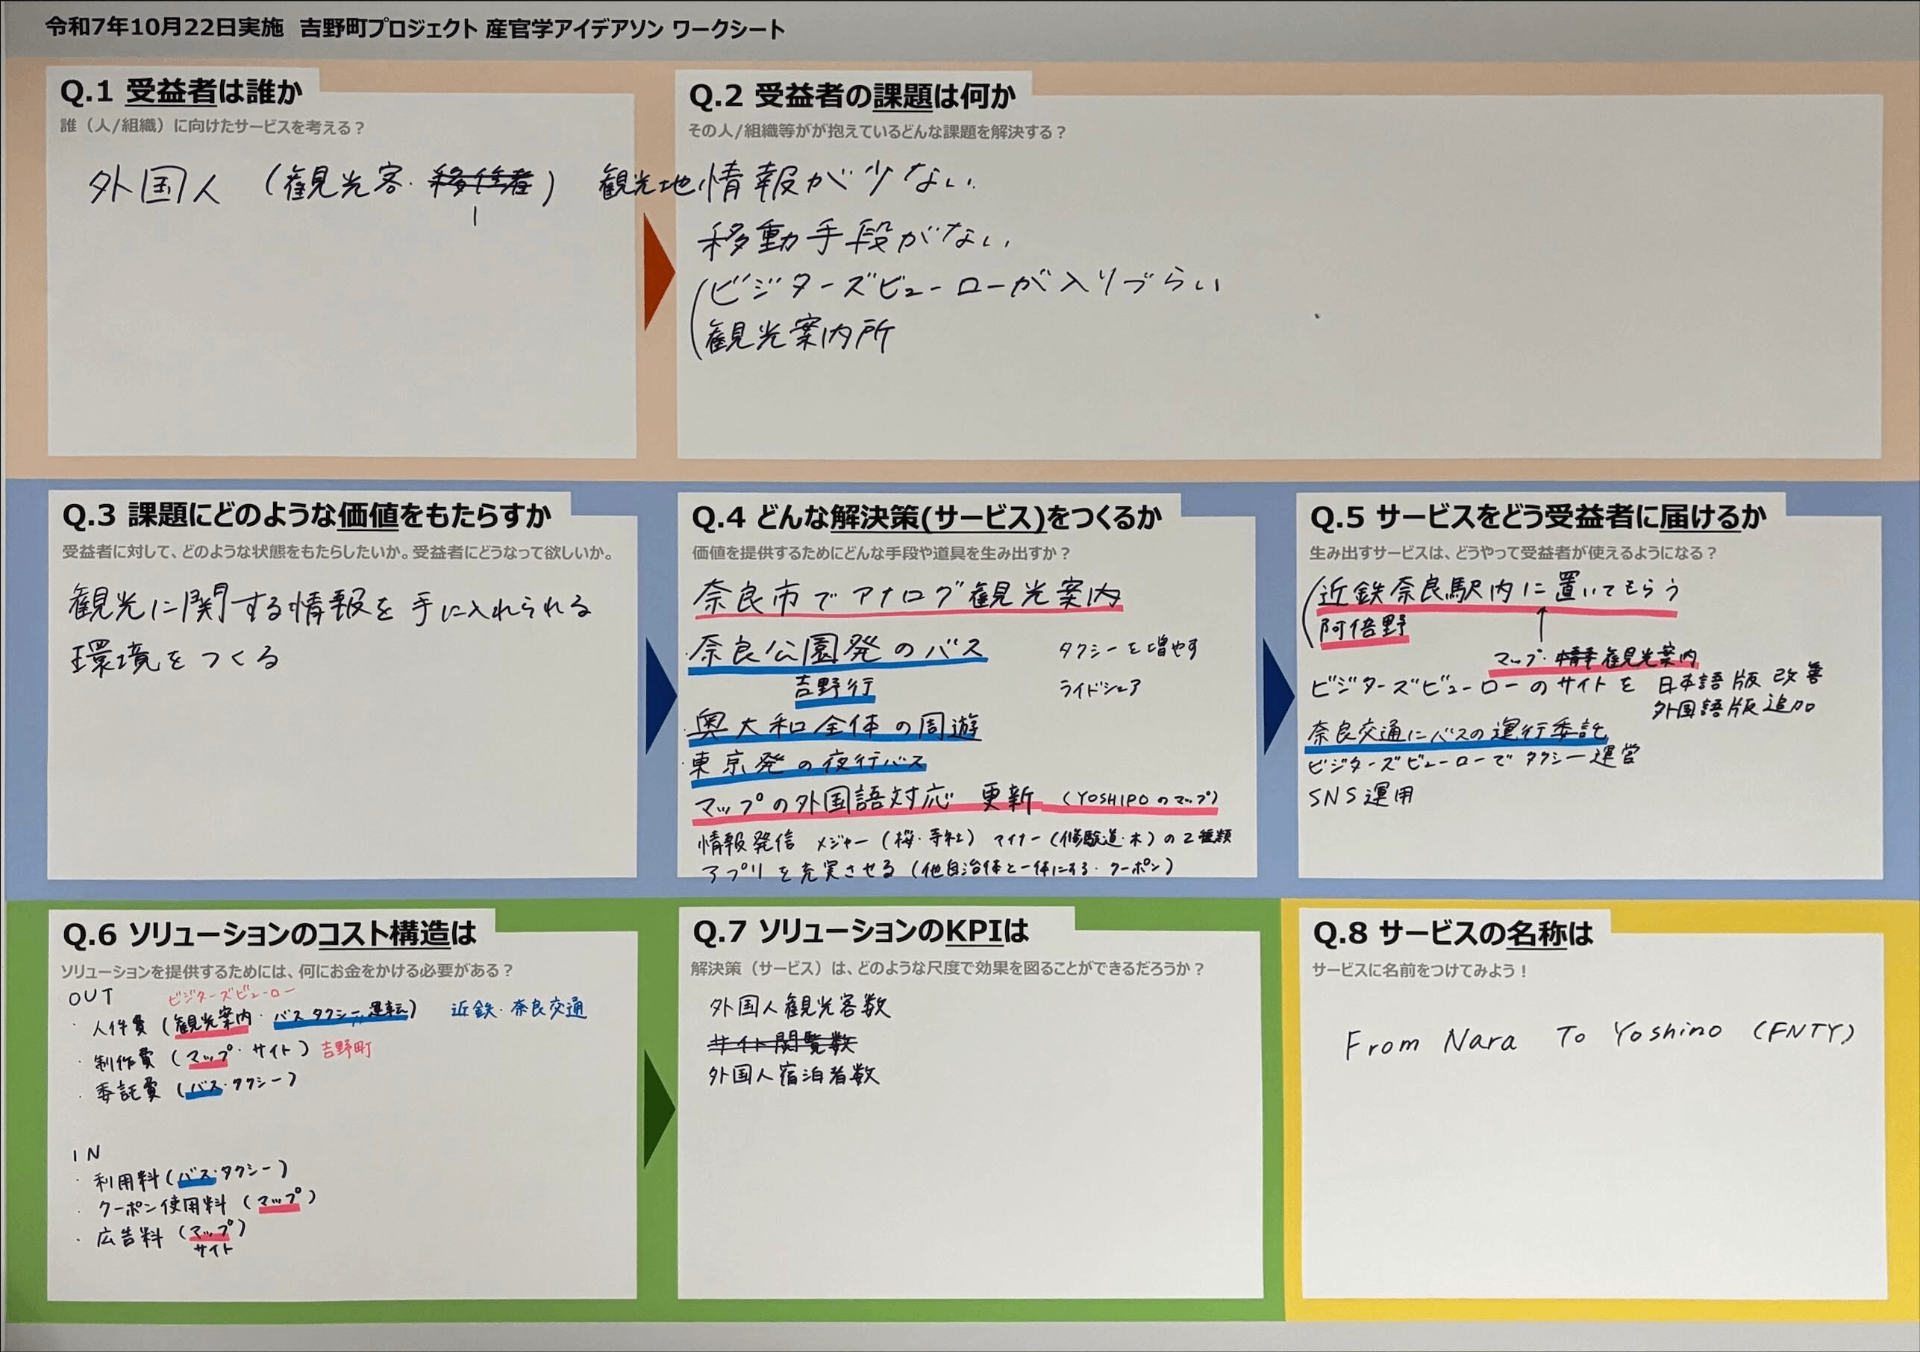 令和7年10月22日実施 吉野町プロジェクト 産官学アイデアソン ワークシート
Q.1 受益者は誰か
誰（人/組織）に向けたサービスを考える？
外国人（観光客・移住者）
Q.2 受益者の課題は何か
その人/組織等がが抱えているどんな課題を解決する？
観光地情報が少ない
移動手段がない
ビジターズビューローが入りづらい
観光案内所
Q.3 課題にどのような価値をもたらすか
受益者に対して、どのような状態をもたらしたいか。受益者にどうなって欲しいか。
観光に関する情報を手に入れられる
環境をつくる
Q.4 どんな解決策(サービス)をつくるか
価値を提供するためにどんな手段や道具を生み出すか？
奈良市でアナログ観光案内
・奈良公園発のバス
吉野行
タクシーを増やす
ライドシェア
奥大和全体の周遊
・東京発の夜行バス
マップの外国語対応 更新（YOSHIPOのマップ）
情報発信 メジャー（桜・寺社）マイナー（修験道・木）の2種類
アプリを充実させる（他自治体と一体にする・クーポン）
Q.5 サービスをどう受益者に届けるか
生み出すサービスは、どうやって受益者が使えるようになる？
近鉄奈良駅内に置いてもらう
阿倍野
マップ・情幸観光案内
ビジターズビューローのサイトを 日本語版改善
外国語版追加
奈良交通にバスの運行委託
ビジターズビューローでタクシー運営
SNS運用
Q.6 ソリューションのコスト構造は
ソリューションを提供するためには、何にお金をかける必要がある？
OUT
ビジターズビューロー
・人件費（観光案内・バスタクシー運転） 近鉄・奈良交通
・制作費（マップ・サイト）吉野町
・委託費（バス・タクシー）
IN
・利用料（バス・タクシー）
・クーポン使用料（マップ）
・広告料（マップ）
サイト
Q.7 ソリューションのKPIは
解決策（サービス）は、どのような尺度で効果を図ることができるだろうか？
外国人観光客数
サイト閲覧数
外国人宿泊者数
Q.8 サービスの名称は
サービスに名前をつけてみよう！
From Nara To Yoshino (FNTY)